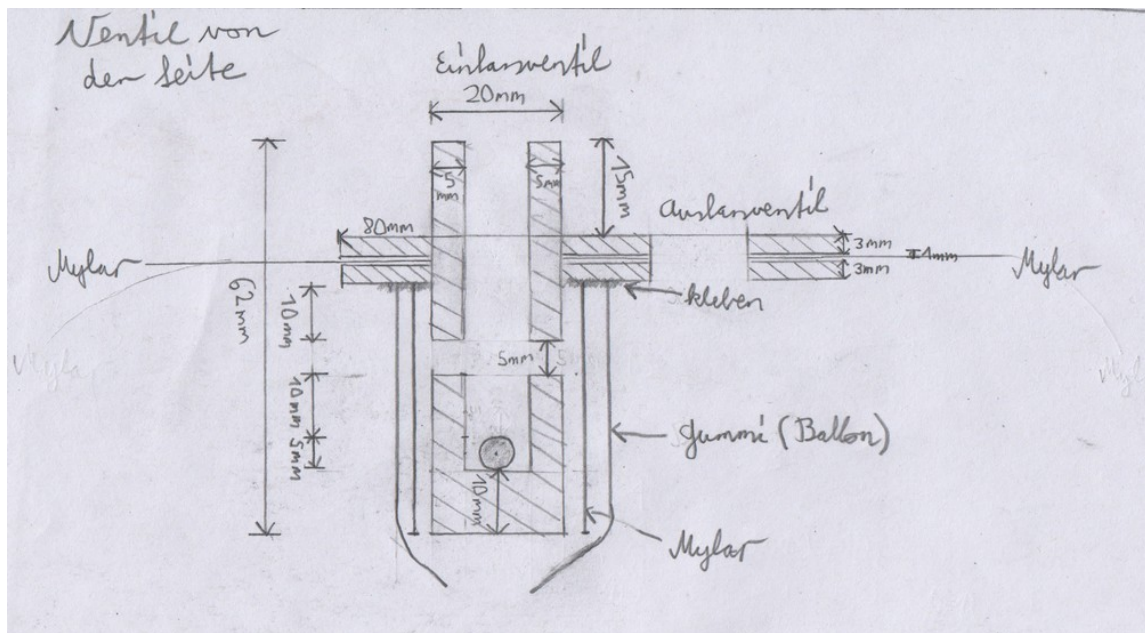 Ventil von
der Seite
Einlassventil
20mm
5
mm
5mm
15mm
Auslassventil
80mm
3mm
1mm
3mm
Mylar
Mylar
62mm
10mm
kleben
5mm
10mm
5mm
10mm
Gummi (Ballon)
Mylar